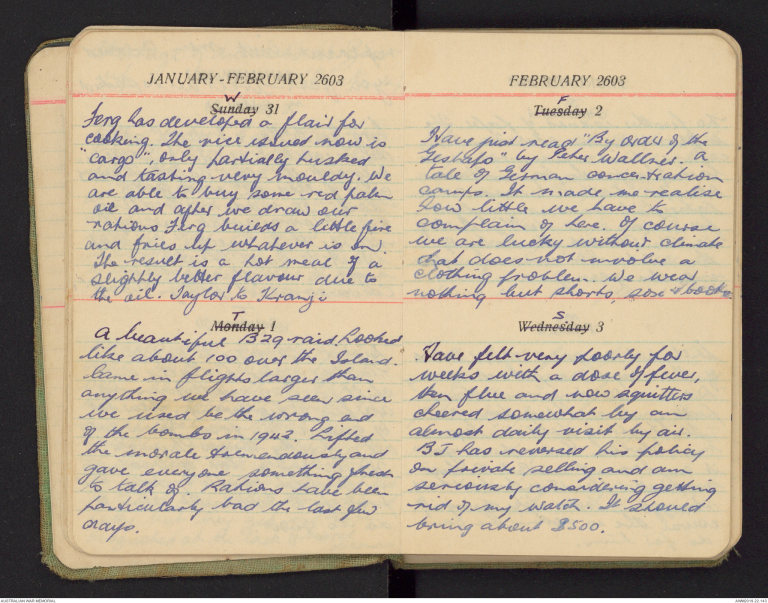 JANUARY-FEBRUARY 2603
W
Sunday 31
Ferg has developed a flair for
cooking. The rice issued now is
"cargo", only partially husked
and tasting very mouldy. We
are able to buy some red palm
oil and after we draw our
rations Ferg builds a little fire
and fries up whatever is on.
The result is a hot meal of a
slightly better flavour due to
the oil. Taylor to Kranji
T
Monday 1
A beautiful B29 raid. Looked
like about 100 over the Island.
Came in flights larger than
anything we have seen since
we used be the wrong end
of the bombs in 1942. Lifted
the morale tremendously and
gave everyone something fresh
to talk of. Rations have been
particularly bad the last few
days.
FEBRUARY 2603
F
Tuesday 2
Have just read "By Order of the
Gestapo" by Peter Wallner. a
tale of German concentration
camps. It made me realise
how little we have to
complain of here. Of course
we are lucky without climate
that does not involve a
clothing problem. We wear
nothing but shorts, sox & boots.
S
Wednesday 3
Have felt very poorly for
weeks with a dose of fever,
then flue and now squitters
cheered somewhat by an
almost daily visit by air.
BJ has reversed his policy
on private selling and am
seriously considering getting
rid of my watch. It should
bring about $500.
AUSTRALIAN WAR MEMORIAL